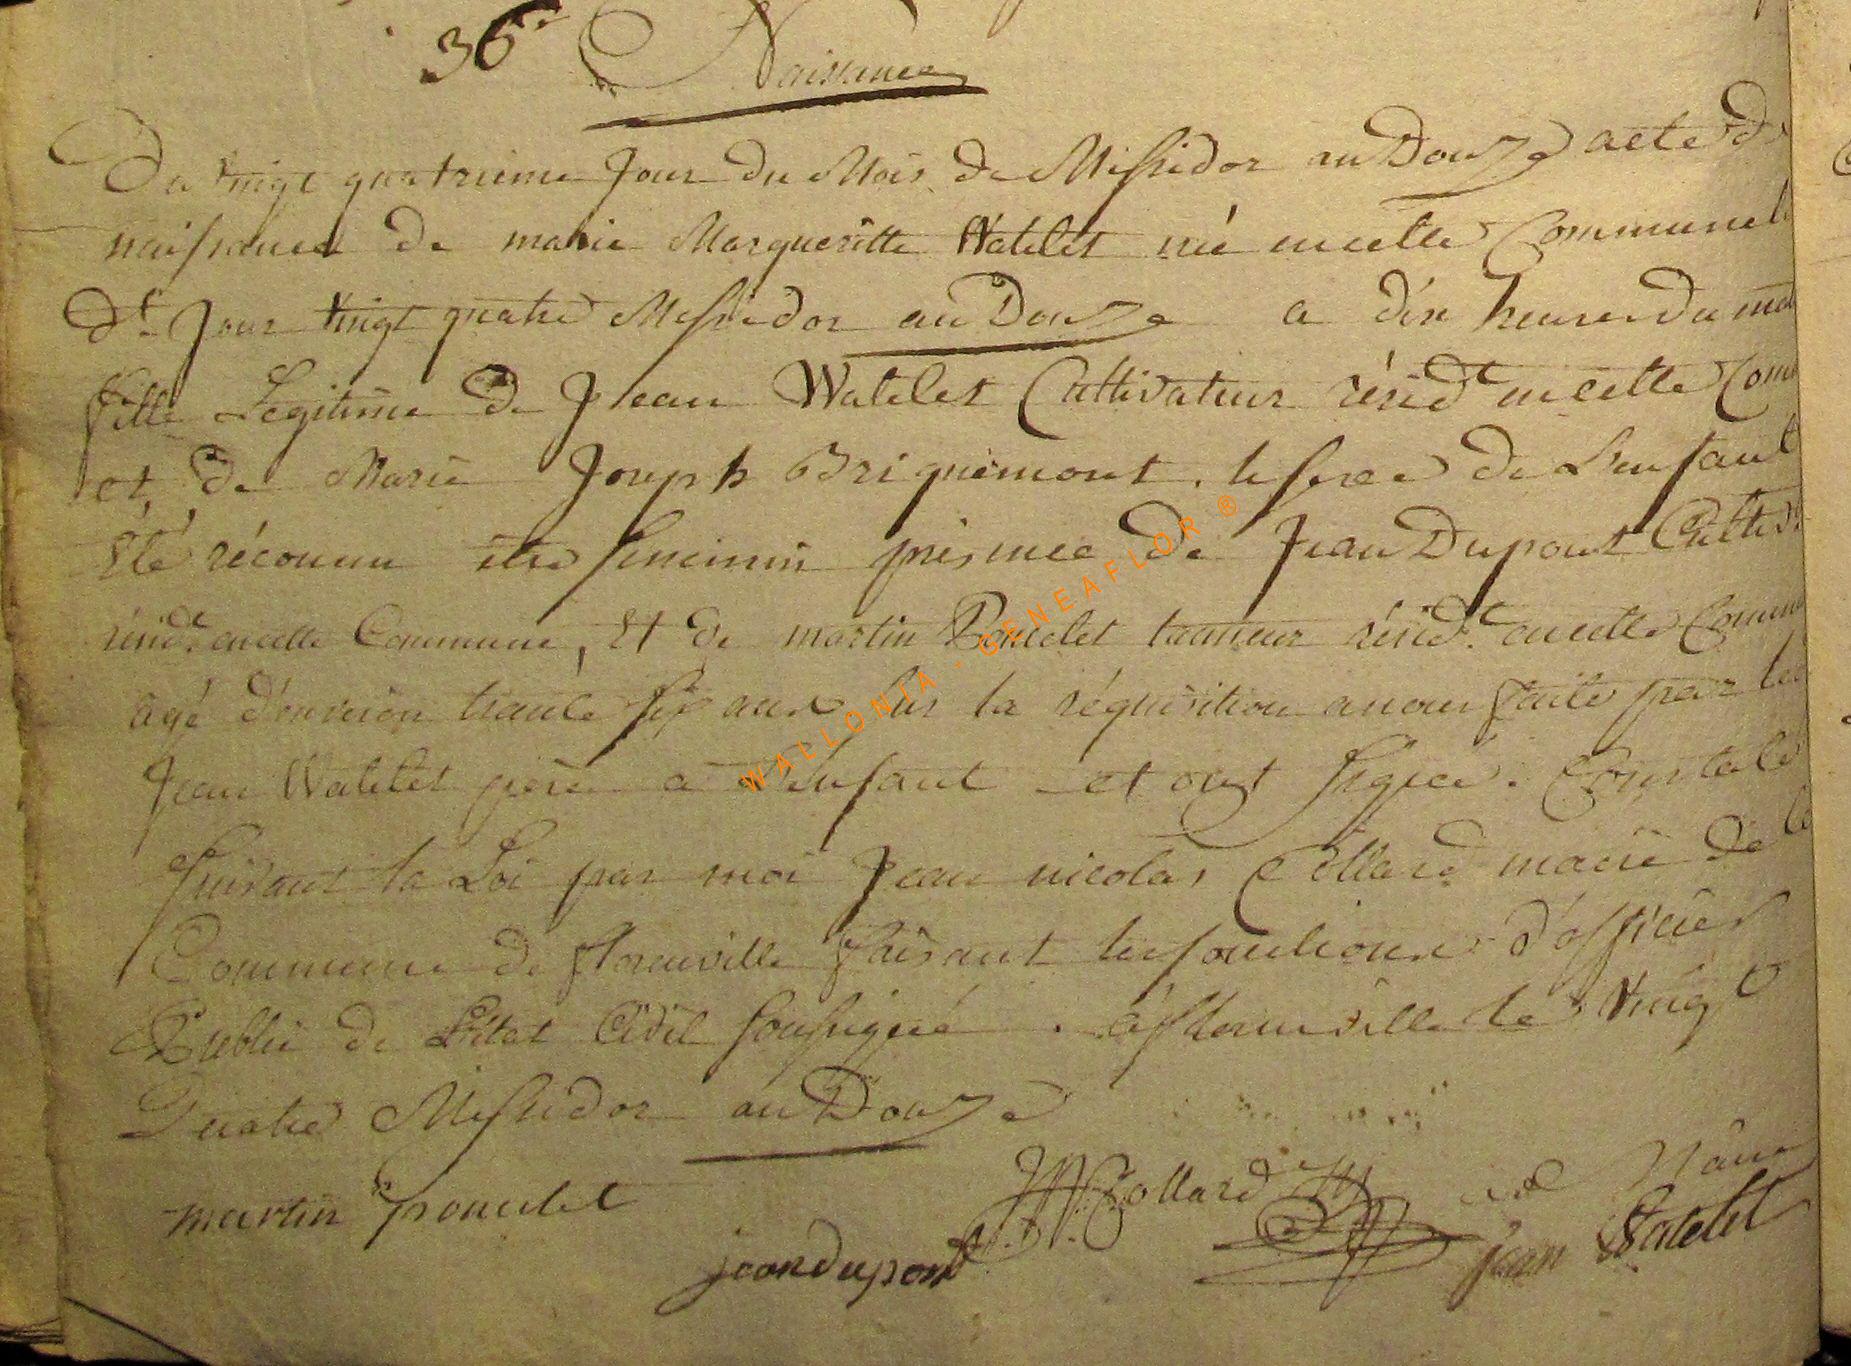 36e Naissance
Du vingt quatrieme Jour du Mois de Messidor an Douze acte d
naissance de marie Margueritte Watelet née encette Commune l
dt Jour vingt quatre Messidor an Douze a dix heures du mat
fille Legitime de Jean Watelet Cultivateur résidt encette Com
et de Marie Joseph Briquemont. le sexe de L'enfant
Eté réconnu être feminin présence de Jean Dupont Cultiv
résidt encette Commune, Et de martin Poncelet tanneur résidt encette Commu
agé d'environ trante six ans sur la réquisition anous faite par le
Jean Watelet père a L'enfant et ont signé. Constaté
suivant la Loi par moi Jean nicolas Collard maire de la
Commune de florenville faisant les fonctions d'officier
Public de L'Etat Civil soussigné. a florenville le vingt
Quatre Messidor an Douze
martin poncelet JN Collard Maire
jean dupont jean Watelet
WALLONIA - GENEAFLOR ®